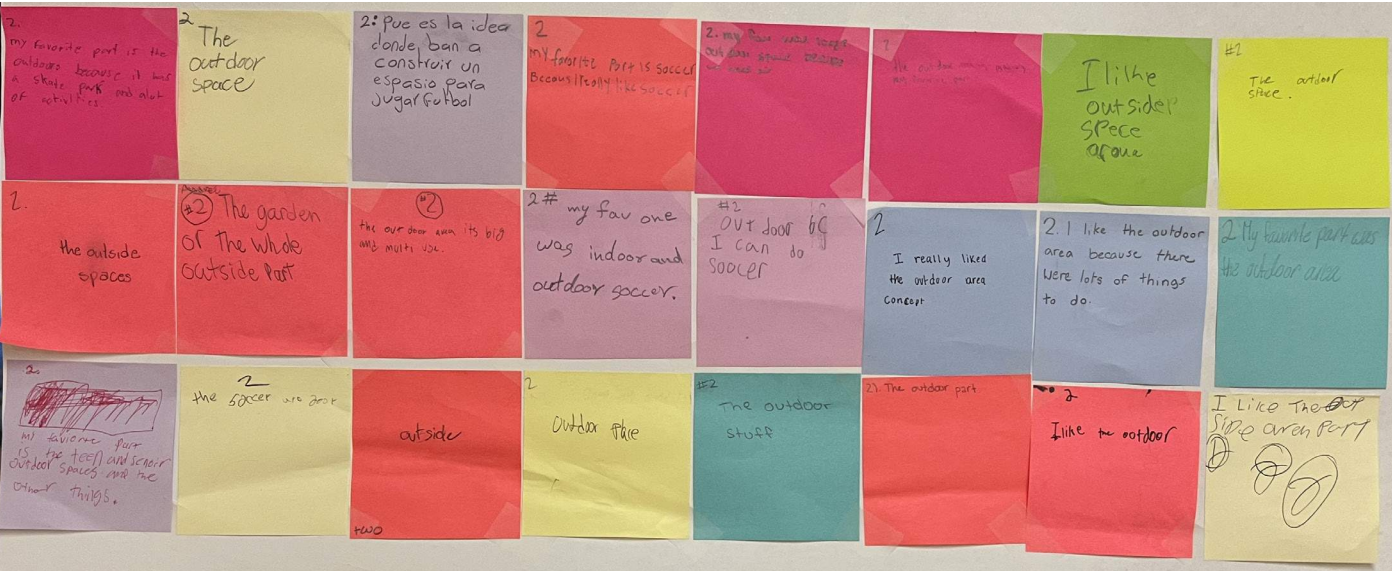 2.
my favorite part is the
outdoors because it has
a skate park and alot
of activities
2
The
outdoor
space
2: pue es la idea
donde ban a
construir un
espasio para
jugar futbol
2
my favorite Part is soccer
Becaus I really like soccer
2. my fav
outdoor space because
#2
The outdoor
the outdoor
I like
outsider
spece
2.
the outside
spaces
#2 The garden
or the whole
outside Part
#2
the out door area its big
and multi use.
2# my fav one
was indoor and
outdoor soccer.
#2
out door
I can do
soocer
2
I really liked
the outdoor area
concept
2. I like the outdoor
area because there
were lots of things
to do.
2 My favourite part was
the outdoor area
2.
my favorite part
is the teen and senoir
outdoor spaces and the
other things.
2
the soccer
outside
two
2
Outdoor place
#2
The outdoor
stuff
2). The outdoor part
2
I like the outdoor
I Like The
Side area Part